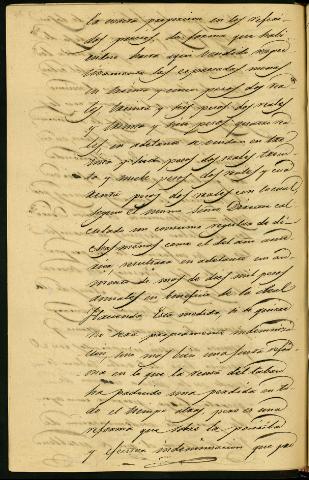 la misma proporcion en los referi-
dos precios, de forma que habi-
endose hasta aqui vendido respec-
tivamente los expresados manos
a treinta y cinco pesos dos rea-
les treinta y seis pesos dos reales
y treinta y seis pesos quatro rea-
les en adelante se vendan en trein-
ta y siete pesos dos reales trein-
ta y nueve pesos dos reales y cua-
renta pesos dos reales con lo cual
segun el mismo Señor Director cal-
culado un consumo regular de di-
chas manos como el del año ante-
rior, resultará en adelante un au-
mento de mas de dos mil pesos
anuales en beneficio de la Real
Hacienda. Esta medida, si se quiere
no será propiamente indemniza-
cion, sino mas bien una justa refor-
ma en lo que la renta del tabaco
ha padecido una perdida en to-
do el tiempo atras, pero es una
reforma que sobre la posible
y efectiva indemnizacion que por